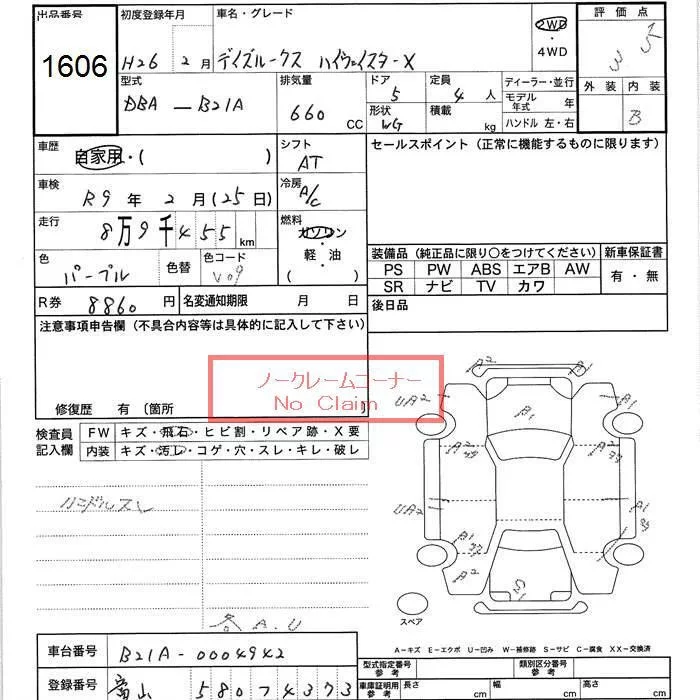 出品番号 初度登録年月 車名・グレード 評価点
1606
H26 2月 デイズルークス ハイウェイスターX 2WD ・4WD 3.5
型式 排気量 ドア 定員 ディーラー・並行 外装 内装
DBA-B21A 660 CC 5 4人 モデル年式 年 B
形状 WG 積載 kg ハンドル 左・右
車歴 自家用・( ) シフト AT セールスポイント (正常に機能するものに限ります)
車検 R9年 2月(25日) 冷房 A/C
走行 8万9千455km 燃料 ガソリン・軽油 ( )
色 パープル 色替 色コード V09
装備品 (純正品に限り〇をつけてください) 新車保証書
PS PW ABS エアB AW 有・無
SR ナビ TV カワ
R券 8860円 名変通知期限 月 日 後日品
注意事項申告欄 (不具合内容等は具体的に記入して下さい)
ノークレームコーナー
No Claim
修復歴 有 〔箇所
検査員記入欄 FW キズ・飛石・ヒビ割・リペア跡・X要
内装 キズ・汚レ・コゲ・穴・スレ・キレ・破レ
ハンドルスレ
各A.U
A2 A2
UA2
B1
UA2
A2
スペア
A-キズ E-エクボ U-凹み W-補修跡 S-サビ C-腐食 XX-交換済
車台番号 B21A-0004942
型式指定番号 参考 類別区分番号 参考
登録番号 富山 580 フ 4373
車庫証明用 参考 長さ cm 幅 cm 高さ cm